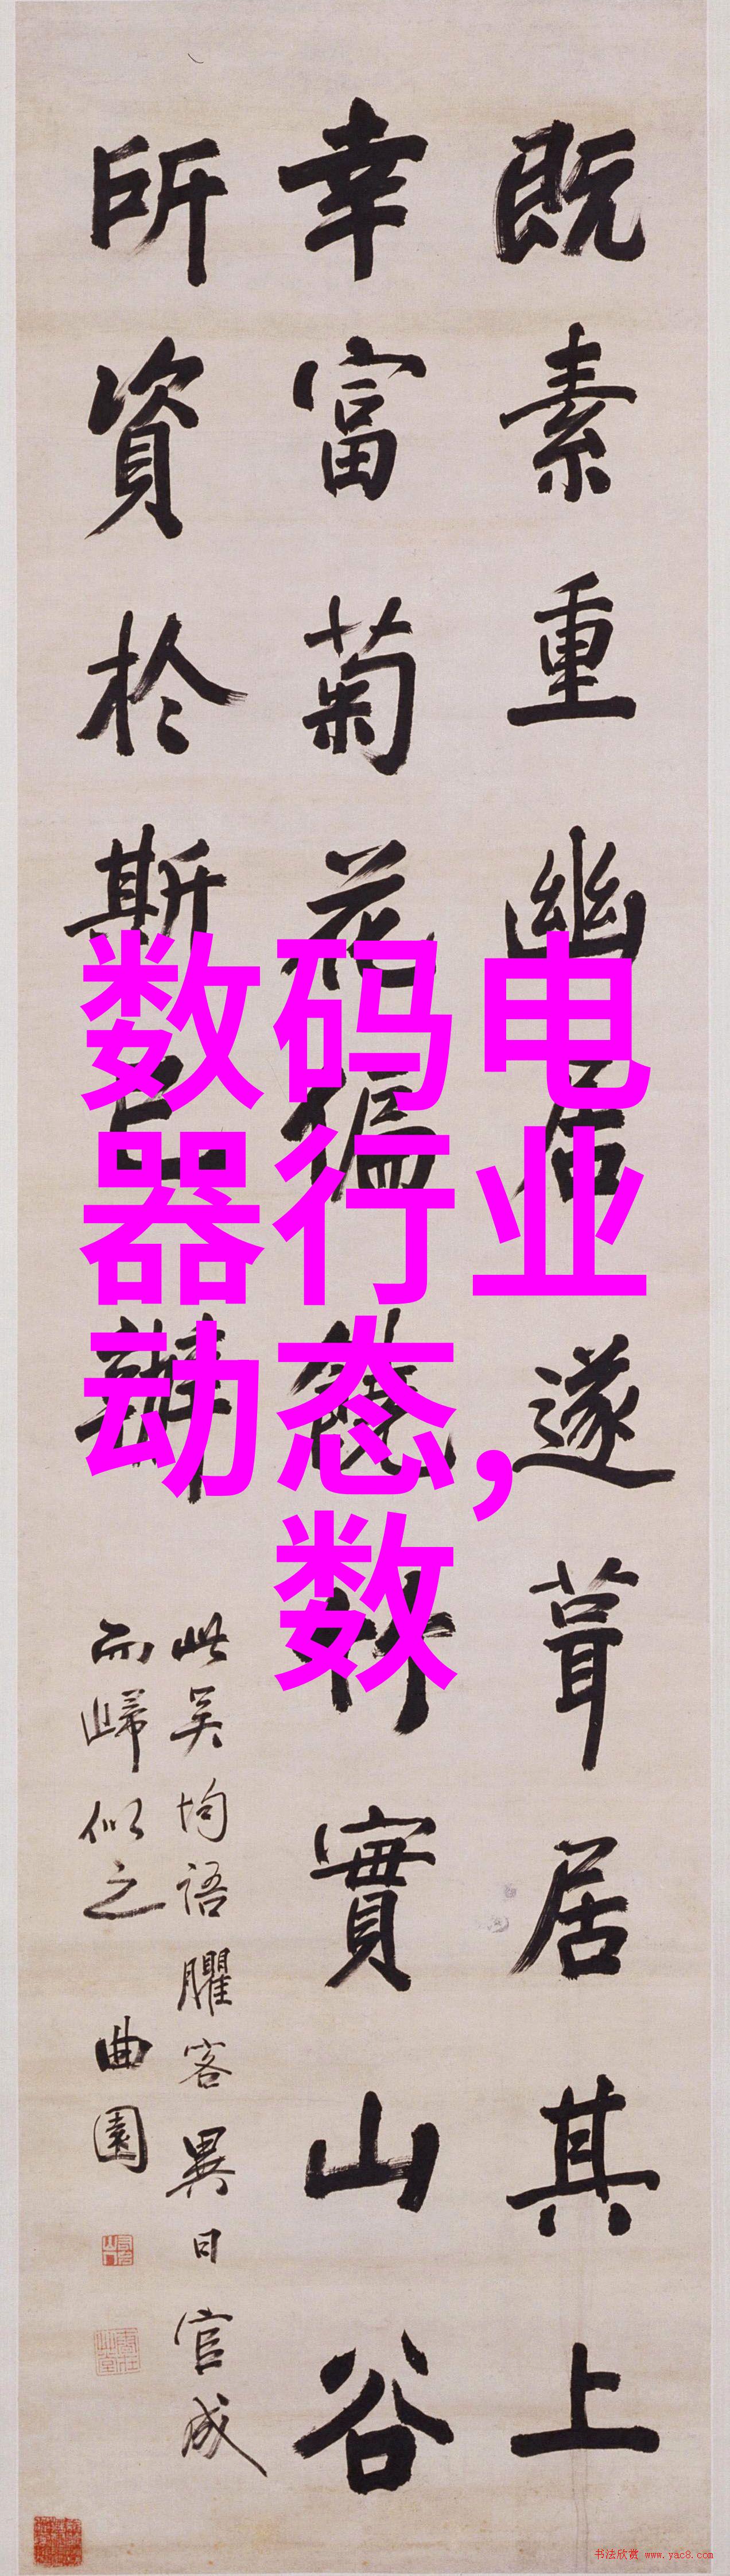 既素重幽居遂葺居其上
幸富菊花偏饒竹實山谷
所資於斯已辦
此吳均語臞客異日官成
而歸似之 曲園
数码电
器行业
动态,
数
书法欣赏 www.yac8.com